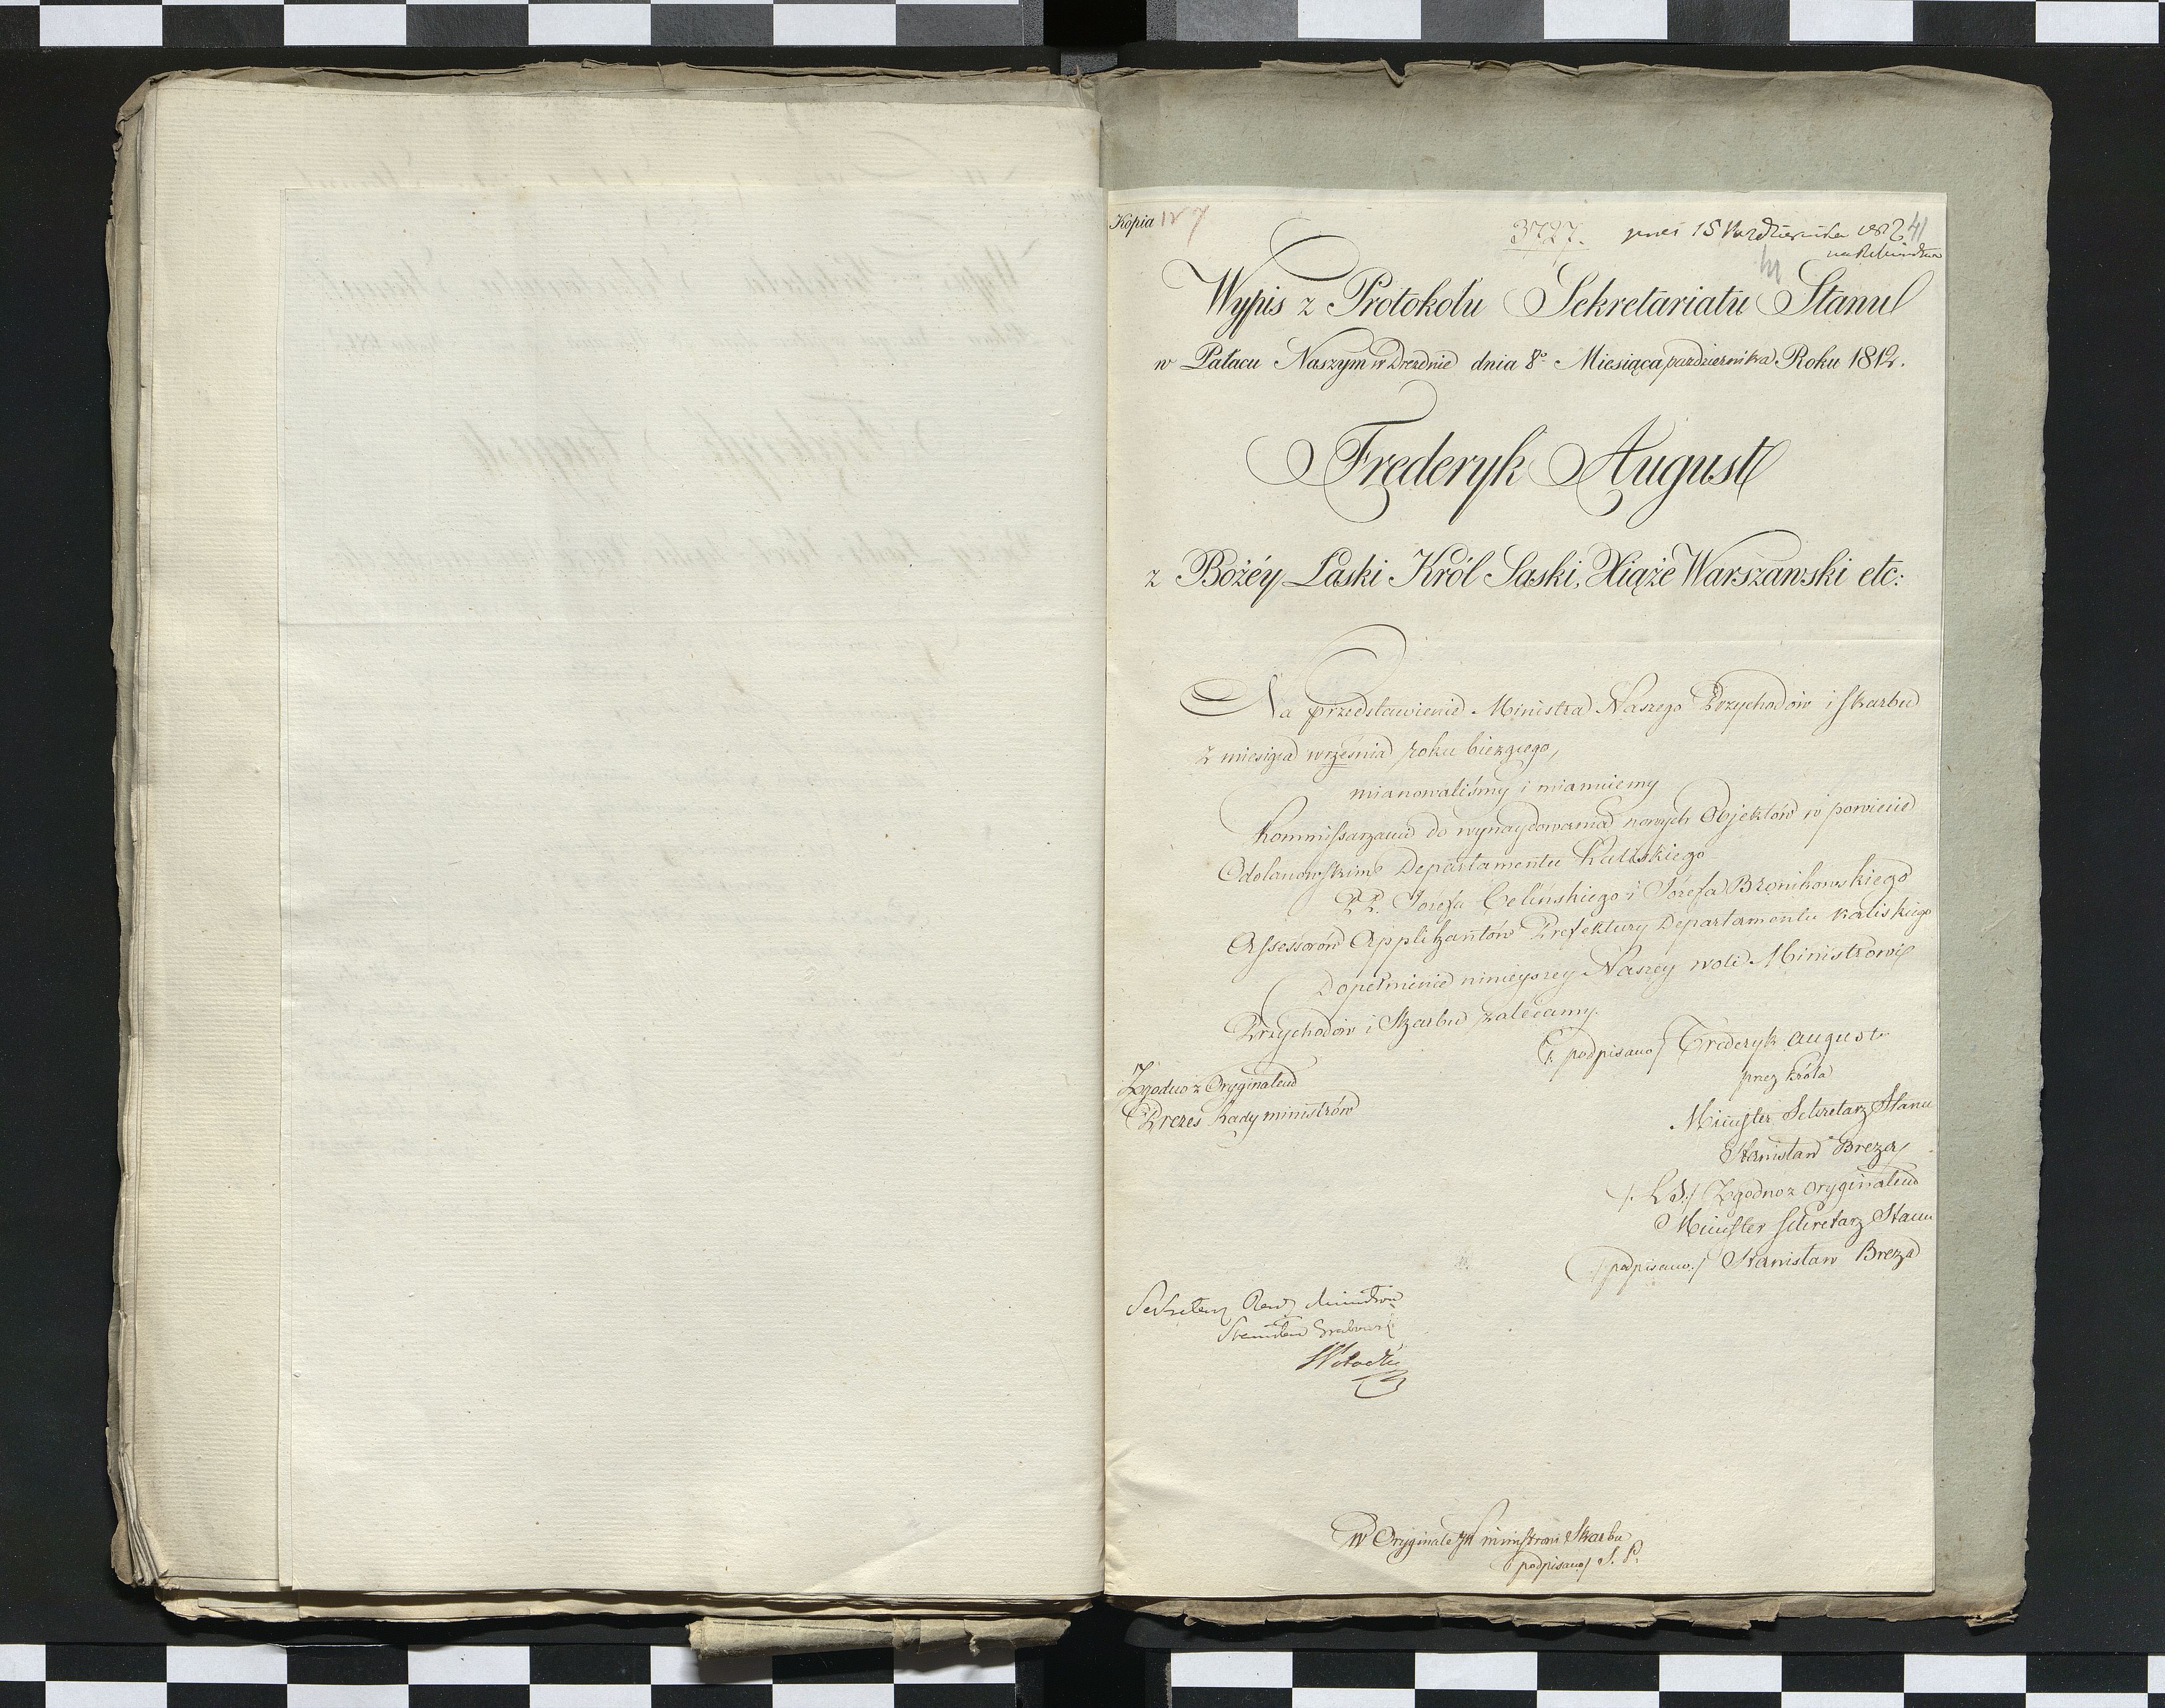 Kopia
3727.
15 Października 1812 41
Wypis z Protokołu Sekretariatu Stanu
w Pałacu Naszym w Dreznie dnia 8º Miesiąca października Roku 1812.
Frederyk August
z Bożéy Łaski Król Saski, Xiąże Warszawski etc:
Na przedstawienie Ministra Naszego Przychodów i Skarbu
z miesiąca września roku bieżącego,
mianowaliśmy i mianuiemy
Kommissarzami do wynaydowania nowych Objektów w powiecie
Odolanowskim Departamentu Kaliskiego
PP. Józefa Celińskiego i Józefa Bronikowskiego
Assessorów Applikantów Prefektury Departamentu Kaliskiego
Dopełnienie ninieyszey Naszey woli Ministrowi
Przychodów i Skarbu zalecamy.
podpisano/ Frederyk August
przez Króla
Minister Sekretarz Stanu
Stanisław Breza/
/: L.S:/ Zgodno z Oryginałem
Minister Sekretarz Stanu
/podpisano./ Stanisław Breza
Zgodno z Oryginałem
Prezes Rady Ministrów
Sekretarz Rady Ministrów
Stanisław Grabowski
W Oryginale JW Ministrowi Skarbu
podpisano/ S. P.